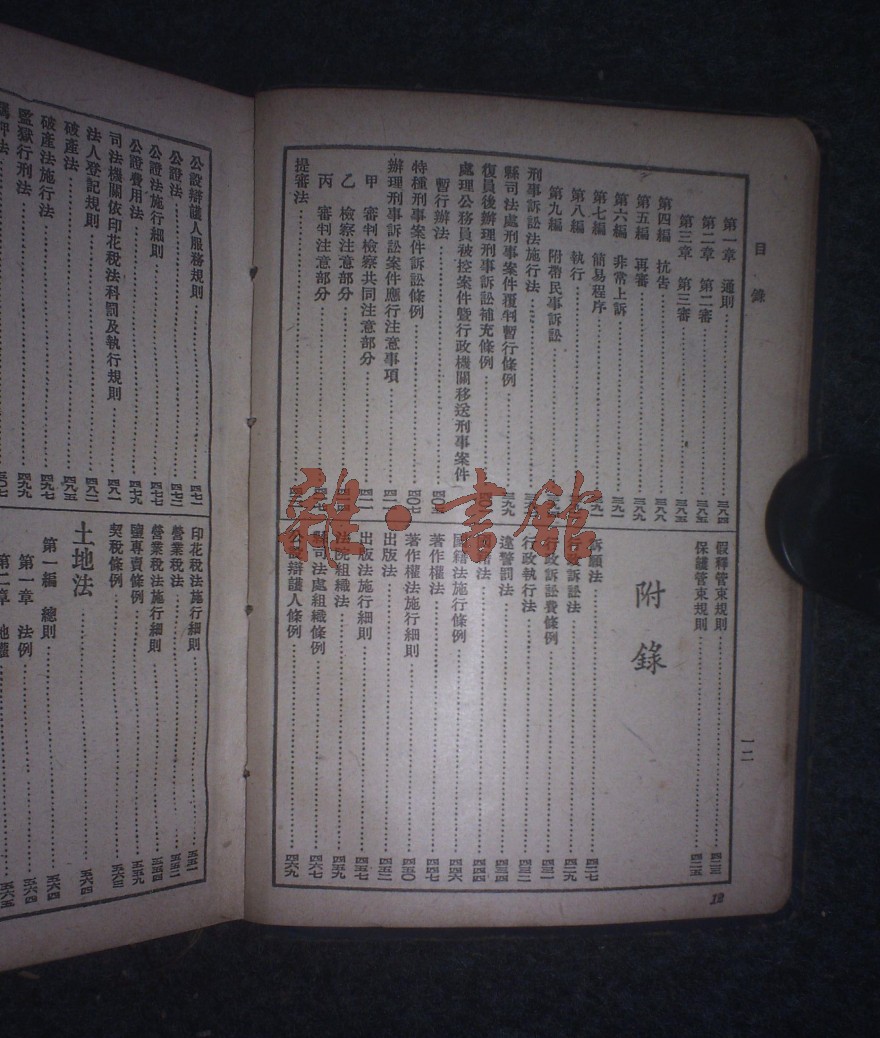 目錄
第一章 通則……三八四
第二章 第二審……三八五
第三章 第三審……三八五
第四編 抗告……三八八
第五編 再審
第六編 非常上訴……三九一
第七編 簡易程序
第八編 執行
第九編 附帶民事訴訟
刑事訴訟法施行法
縣司法處刑事案件覆判暫行條例
復員後辦理刑事訴訟補充條例
處理公務員被控案件暨行政機關移送刑事案件
暫行辦法……四〇五
特種刑事案件訴訟條例……四〇七
辦理刑事訴訟案件應行注意事項……四一一
甲 審判檢察共同注意部分……四一一
乙 檢察注意部分
丙 審判注意部分
提審法
假釋管束規則……四二三
保護管束規則……四二五
附錄
訴願法……四二七
行政訴訟法……四二九
行政訴訟費條例……四三一
行政執行法……四三二
違警罰法……四三四
國籍法……四四四
國籍法施行條例……四四六
著作權法……四四七
著作權法施行細則……四五〇
出版法……四五二
出版法施行細則……四五五
法院組織法……四五九
縣司法處組織條例……四六七
公設辯護人條例……四六九
一二
12
雜·書館
公設辯護人服務規則……四七一
公證法……四七二
公證法施行細則……四七七
公證費用法……四七九
司法機關依印花稅法科罰及執行規則……四八一
法人登記規則……四八二
破產法……四八五
破產法施行法……四九七
監獄行刑法……四九九
羈押法……五〇七
印花稅法施行細則……五五一
營業稅法……五五二
營業稅法施行細則……五五四
鹽專賣條例……五五九
契稅條例……五六三
土地法……五六四
第一編 總則……五六四
第一章 法例……五六四
第二章 地權……五六五